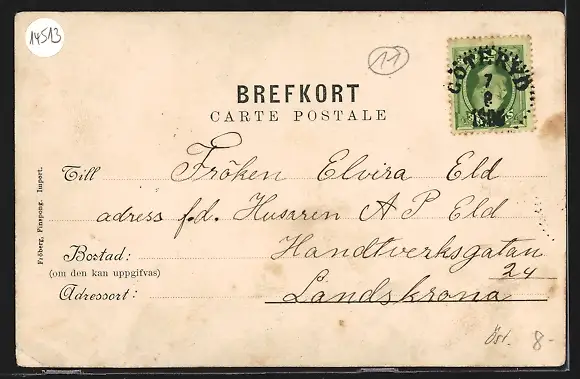 14513
11
GÖTERYD
7
BREFKORT
CARTE POSTALE
Till Fröken Elvira Eld
adress f.d. Husaren A P Eld
Bostad: Handtverksgatan
(om den kan uppgifvas) 24
Adressort: Landskrona
Fröberg, Finspong. Import.
Öst. 8-